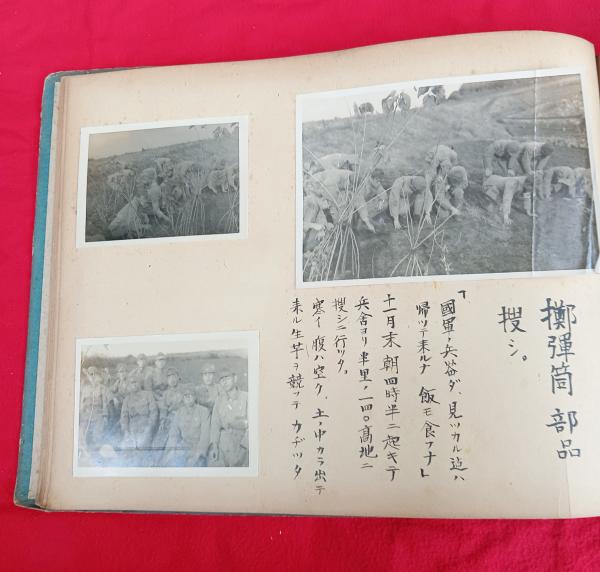 擲彈筒部品
捜シ。
「國軍ノ兵器ダ、見ツカル迄ハ
帰ツテ来ルナ 飯モ食フナ」
十一月末朝四時半ニ起キテ
兵舎ヨリ半里ノ一四〇高地ニ
捜シニ行ッタ。
寒イ腹ハ空ク、土ノ中カラ出テ
来ル生芋ヲ競ッテカヂッタ